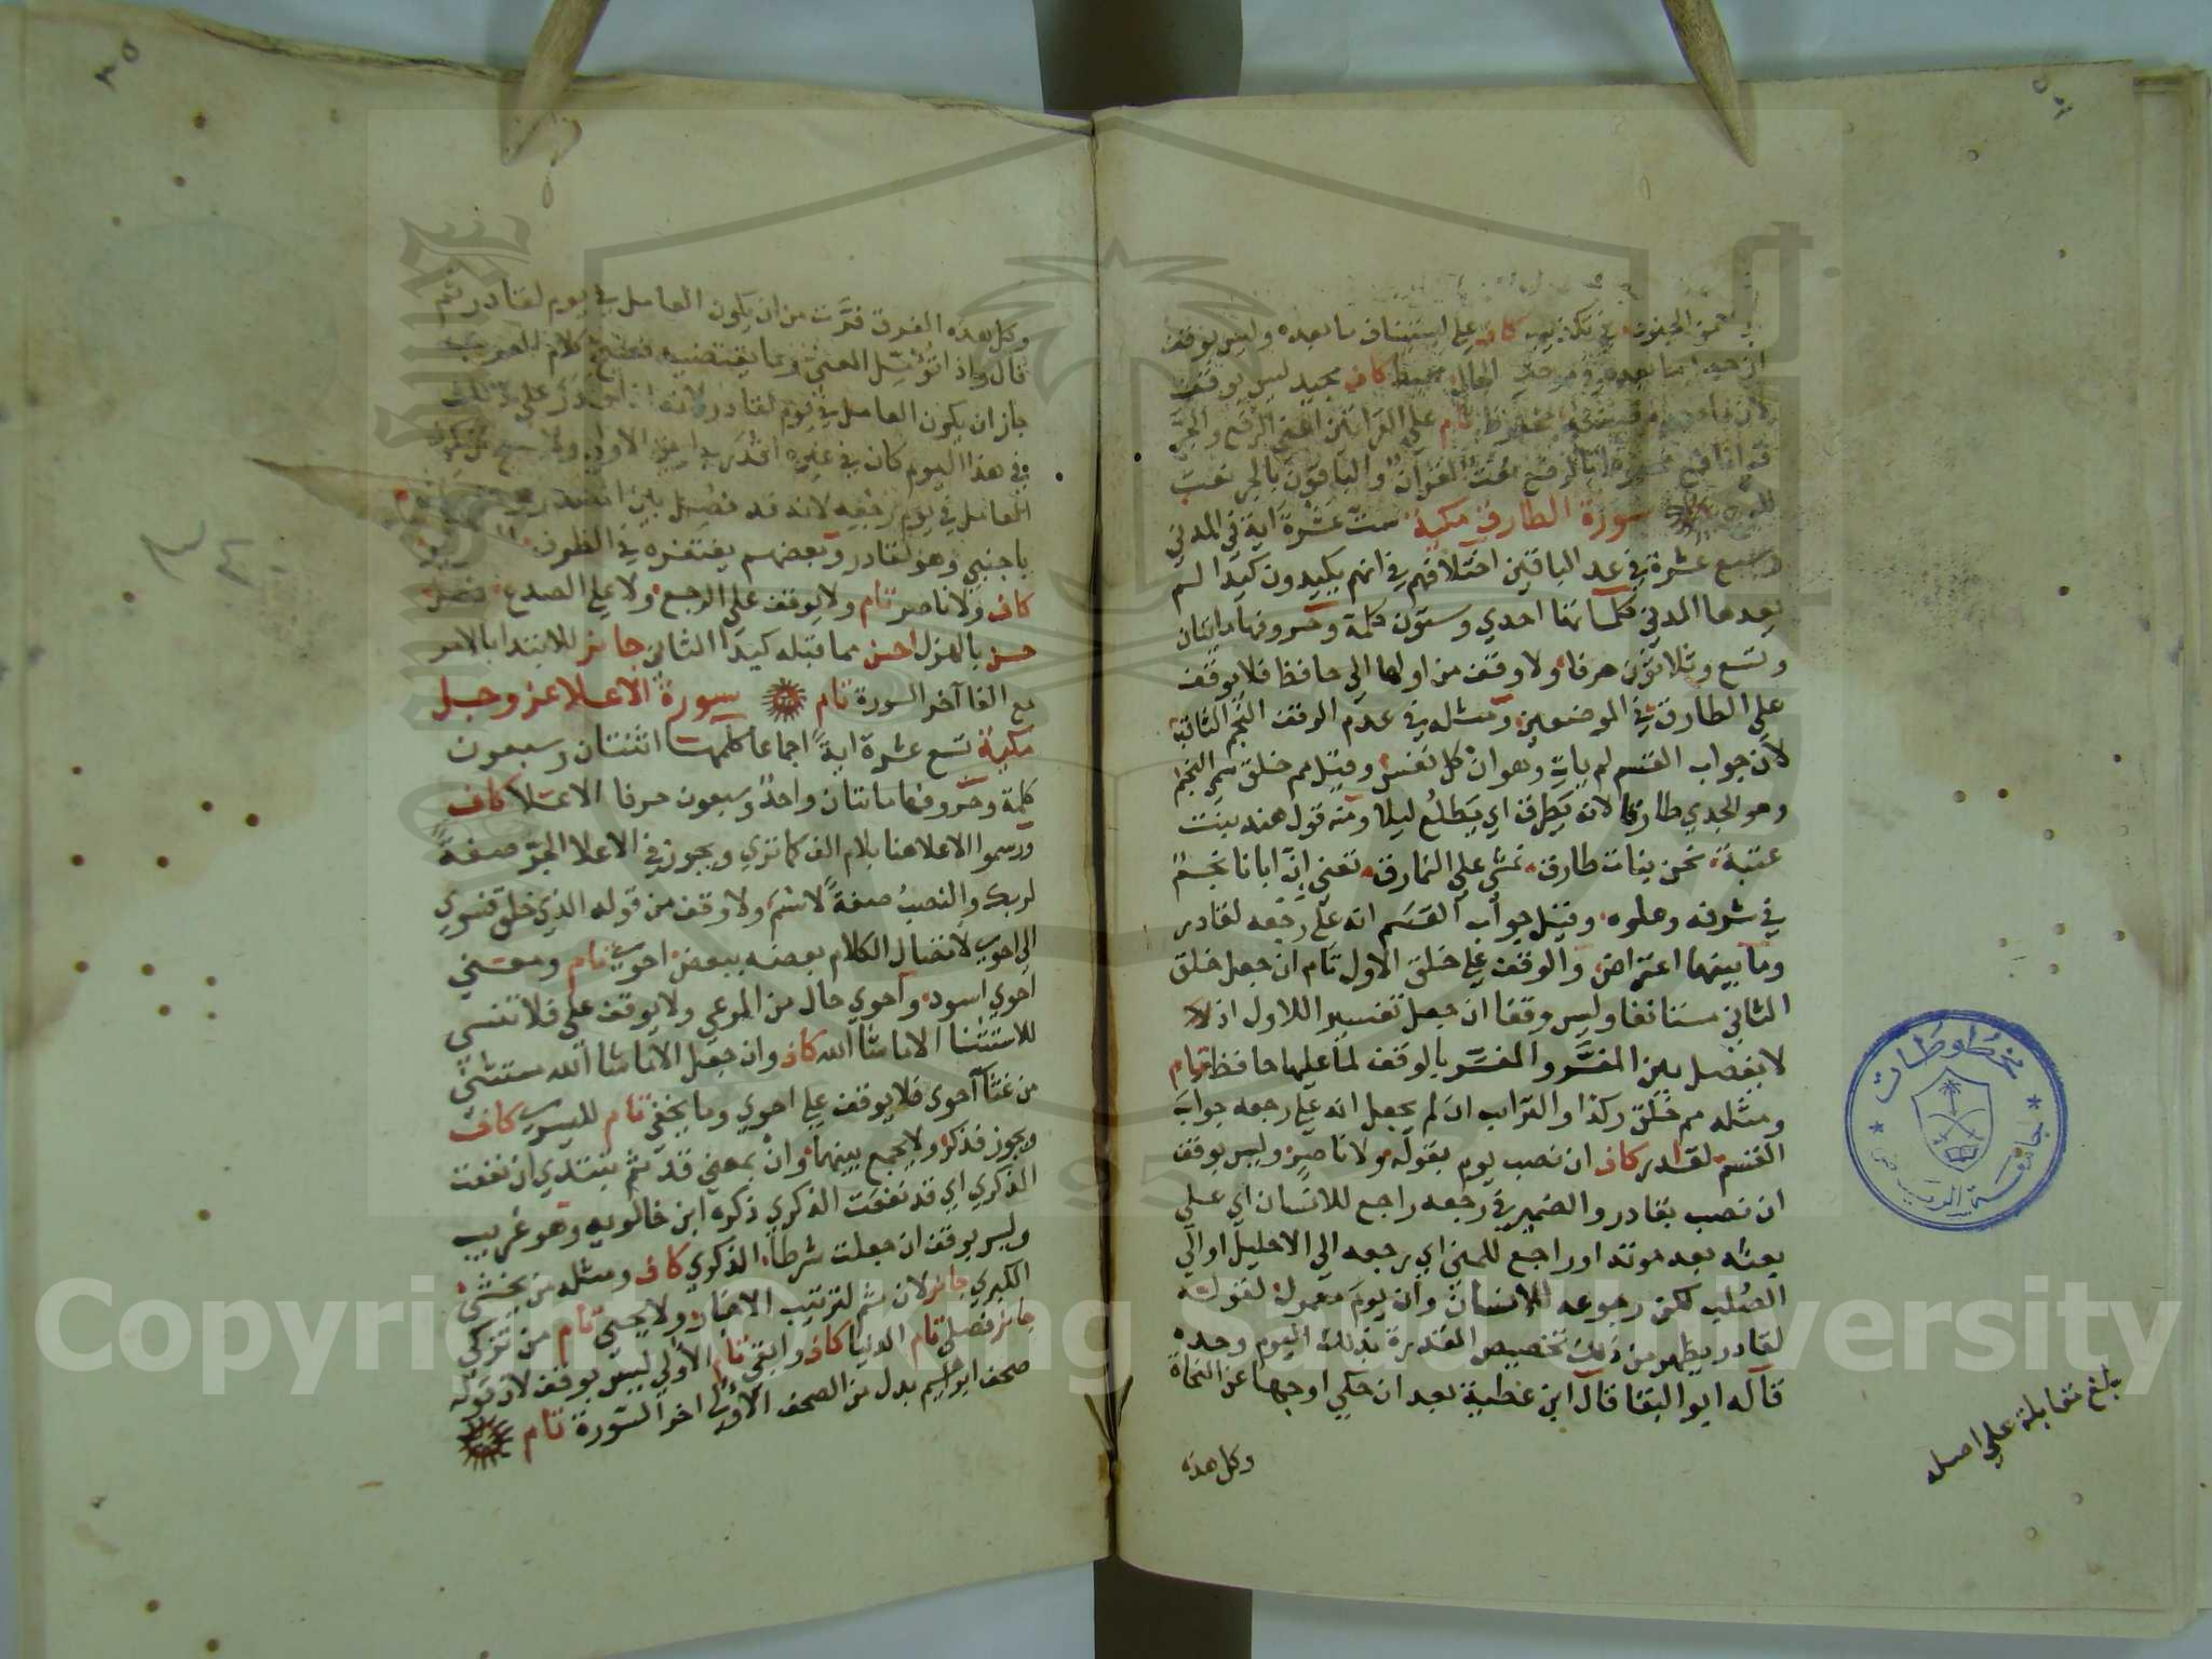 في تكذيب كاف على استئناف ما بعده وليس بوقف
ان جعل ما بعده في موضع الحال محيط كاف مجيد ليس بوقف
محفوظ تام على القراتين اعني الرفع والجر
قرا نافع محفوظ بالرفع نعت القران والباقون بالجر نعت
للوح سورة الطارق مكية ست عشرة اية في المدني
وسبع عشرة في عد الباقين اختلافهم في انهم يكيدون كيدا لم
يعدها المدني كلماتها احدي وستون كلمة وحروفها مايتان
وتسع وثلاثون حرفا ولا وقف من اولها الي حافظ فلا يوقف
على الطارق في الموضعين ومثله في عدم الوقف النجم الثاقب
لان جواب القسم لم يات وهو ان كل نفس وقيل مم خلق سمي النجم
وهو الجدي طارقا لانه يطرق اي يطلع ليلا ومنه قول هند بنت
عتبة نحن بنات طارق نمشي على النمارق تعني ان ابانا نجم
في شرفه وعلوه وقيل جواب القسم انه على رجعه لقادر
وما بينهما اعتراض والوقف على خلق الاول تام ان جعل خلق
الثاني مستانفا وليس وقفا ان جعل تفسيرا للاول اذ لا
لا يفصل بين المفسر والمفسر بالوقف لما عليها حافظ تام
ومثله مم خلق وكذا والترايب ان لم يجعل انه على رجعه جواب
القسم لقادر كاف ان نصب يوم بقوله ولا ناصر وليس بوقف
ان نصب بقادر والضمير في رجعه راجع للانسان اي على
بعثه بعد موته او راجع للمني اي رجعه الي الاحليل او الي
الصلب لكن رجوعه للانسان وان يوم معمول لقوله
لقادر يظهر من ذلك تخصيص القدرة بذلك اليوم وحده
قاله ابو البقا قال ابن عطية بعد ان حكي اوجها عن النحاة
وكل هذه
بلغ مقابلة علي اصله
مخطوطات
جامعة الرياض
٣٥
وكل هذه الفرق فرت من ان يكون العامل في يوم لقادر ثم
قال واذا تؤمل المعني وما يقتضيه فصيح كلام العرب
جاز ان يكون العامل في يوم لقادر لانه اذا قدر على ذلك
في هذا اليوم كان في غيره اقدر
العامل في يوم رجعه لانه قد فصل بين
باجنبي وهو لقادر وبعضهم يغتفره في الظرف
كاف ولا ناصر تام ولا يوقف علي الرجع ولا علي الصدع فصل
حسن بالهزل احسن مما قبله كيدا الثاني جائز للابتدا بالامر
مع الفا آخر السورة تام سورة الاعلا عز وجل
مكية تسع عشرة اية اجماعا كلمها اثنتان وسبعون
كلمة وحروفها مايتان واحد وسبعون حرفا الاعلا كاف
ورسموا الاعلا هنا بلام الف كما تري ويجوز في الاعلا الجر صفة
لربك والنصب صفة لاسم ولا وقف من قوله الذي خلق فسوي
الي احوي لاتصال الكلام بعضه ببعض احوي تام ومعني
احوي اسود واحوي حال من المرعي ولا يوقف على فلا تنسي
للاستثنا الا ما شا الله كاف وان جعل الا ما شا الله مستثني
من غثا احوي فلا يوقف علي احوي وما يخفي تام لليسري كاف
ويجوز فذكر ولا يجمع بينهما وان بمعني قد ثم يبتدي ان نفعت
الذكري اي قد نفعت الذكري ذكره ابن خالويه وهو غريب
وليس بوقف ان جعلت شرطا الذكري كاف ومثله من يخشي
الكبري جائز لان ثم لترتيب الاخبار ولا يحيي تام من تزكي
جائز فصلي تام الدنيا كاف وابقي تام الاولي ليس بوقف لان قوله
صحف ابراهيم بدل من الصحف الاولي اخر السورة تام